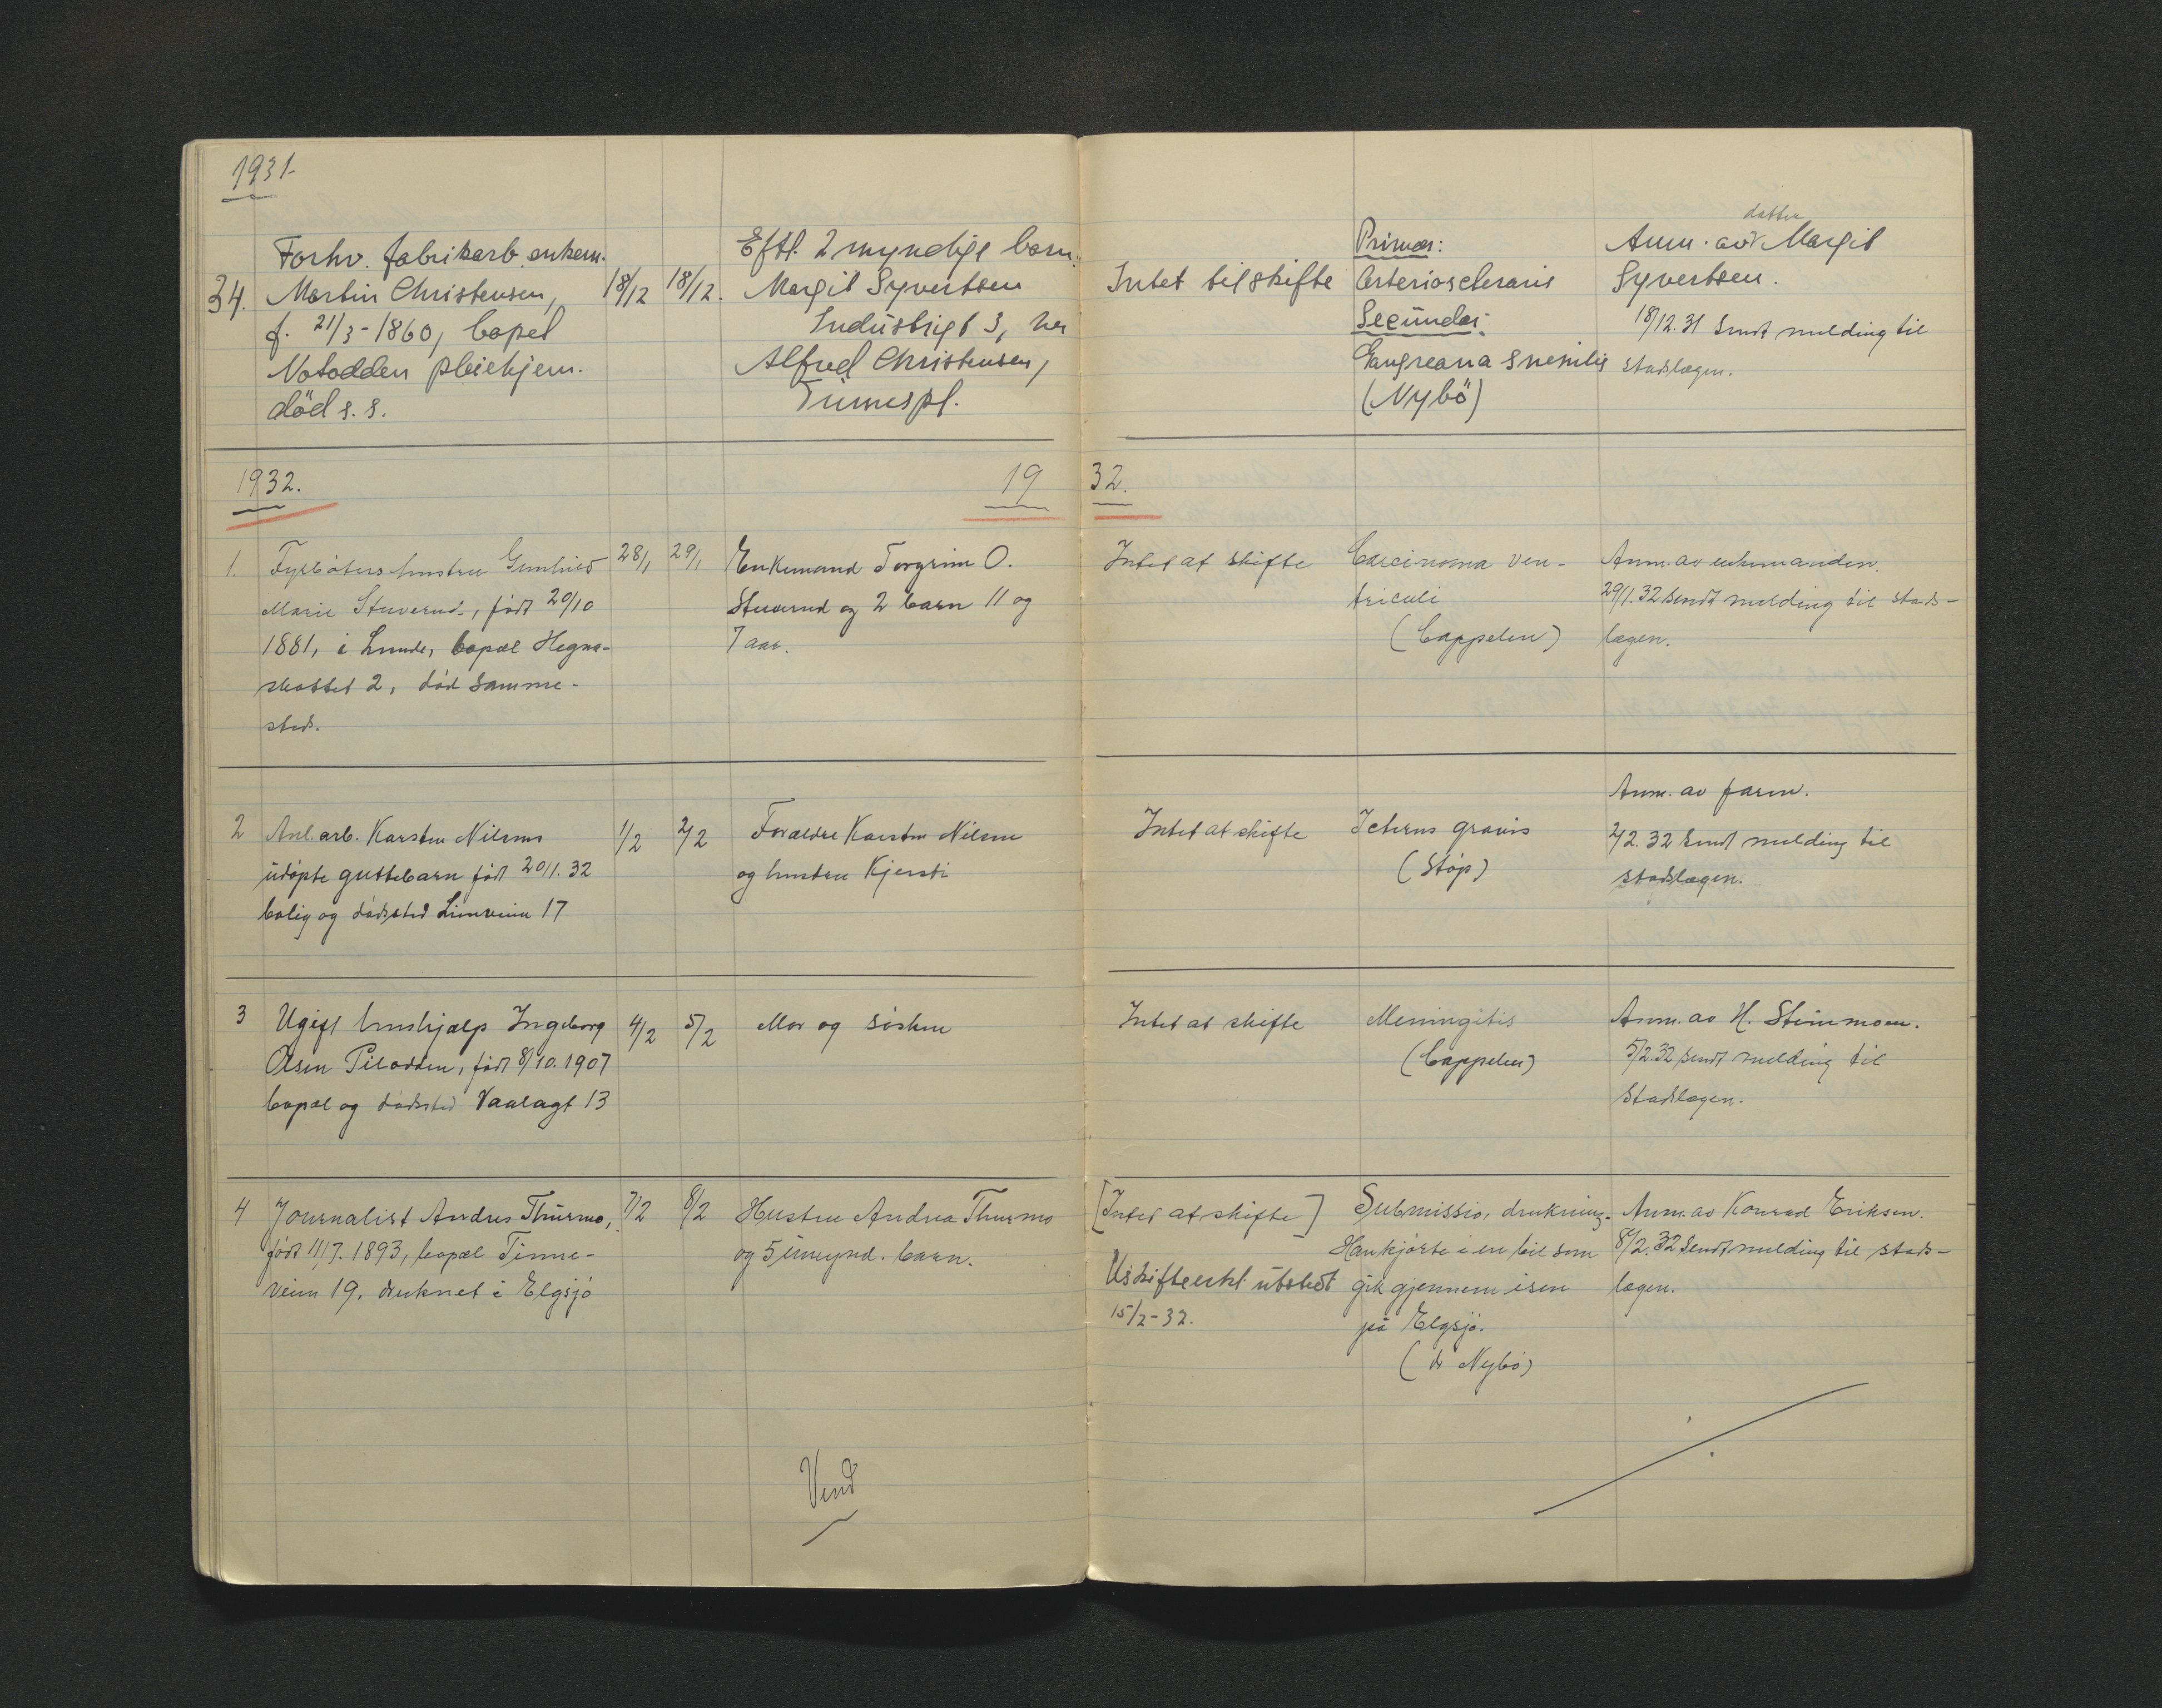 1931
Forhv. fabrikarb. enkem.
34. Martin Christensen, 18/12 18/12.
f. 21/3-1860, bopel
Notodden pleiehjem.
död s. s.
Eftl. 2 myndige barn:
Margit Syvertsen
Industrigt 3, her
Alfred Christensen,
Tinnespl.
Intet til skifte
Primær:
Arterioscleraris
Secundær:
Gangreana snenilis
(Nybö)
datter
Anm. av Margit
Syvertsen.
18/12.31 Sendt melding til
stadslægen.
1932.
19 32.
1. Fyrbøters hustru Gunhild 28/1 29/1
Marie Stuverud, født 20/10
1881, i Lunde, bopæl Hegna-
skottet 2, død samme-
sted.
Enkemand Torgrim O.
Stuverud og 2 barn 11 og
7 aar.
Intet at skifte
Carcinoma ven-
triculi
(Cappelen)
Anm. av enkemanden.
29/1.32 sendt melding til stads-
lægen.
2 Anl.arb. Karsten Nilsens 1/2 2/2
udøpte guttebarn født 20/1.32
bolig og dødssted Lienveien 17
Forældre Karsten Nilsen
og hustru Kjersti
Intet at skifte
Icterus gravis
(Støp)
Anm. av faren.
2/2.32 Sendt melding til
stadslægen.
3 Ugift hushjælp Ingeborg 4/2 5/2
Olsen Pilodden, født 8/10.1907
bopæl og dødssted Vaalagt 13
Mor og søsken
Intet at skifte
Meningitis
(Cappelen)
Anm. av H. Steinmoen.
5/2.32 sendt melding til
Stadslægen.
4 Journalist Andres Thürmo, 7/2 8/2
født 11/7.1893, bopæl Tinne-
veien 19, druknet i Elgsjø
Hustru Andrea Thurmo
og 5 umynd. barn.
[Intet at skifte]
Uskifteerkl utstedt
15/2-32.
Submissio, drukning.
Han kjørte i en bil som
gik gjennem isen
på Elgsjø.
(dr Nybø)
Anm. av Konrad Eriksen.
8/2.32 Sendt melding til stads-
lægen.
Vend